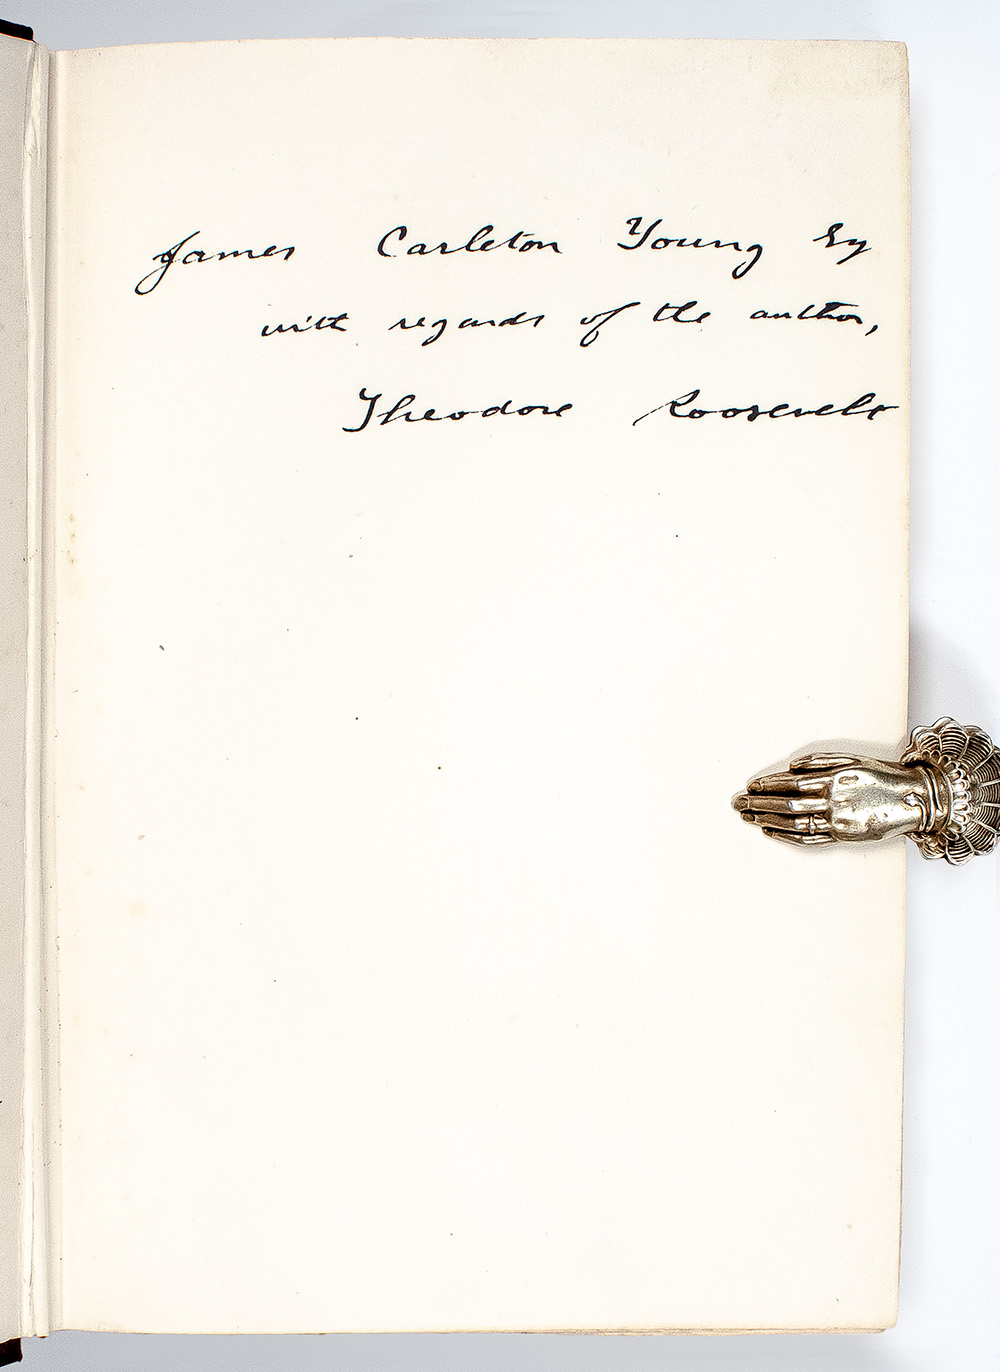 James Carleton Young Esq
with regards of the author,
Theodore Roosevelt